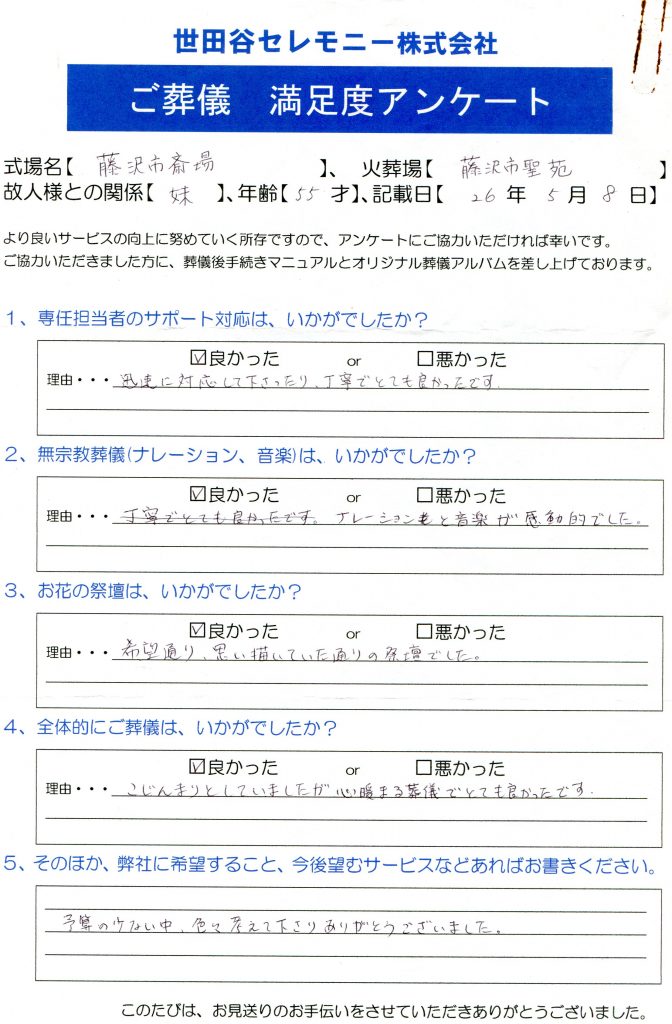 世田谷セレモニー株式会社
ご葬儀　満足度アンケート
式場名【 藤沢市斎場 】、 火葬場【 藤沢市聖苑 】
故人様との関係【 妹 】、年齢【 55 才】、記載日【 26 年 5 月 8 日】
より良いサービスの向上に努めていく所存ですので、アンケートにご協力いただければ幸いです。
ご協力いただきました方に、葬儀後手続きマニュアルとオリジナル葬儀アルバムを差し上げております。
1、専任担当者のサポート対応は、いかがでしたか？
☑良かった or □悪かった
理由・・・ 迅速に対応して下さったり、丁寧でとても良かったです。
2、無宗教葬儀(ナレーション、音楽)は、いかがでしたか？
☑良かった or □悪かった
理由・・・ 丁寧でとても良かったです。ナレーションと音楽が感動的でした。
3、お花の祭壇は、いかがでしたか？
☑良かった or □悪かった
理由・・・ 希望通り、思い描いていた通りの祭壇でした。
4、全体的にご葬儀は、いかがでしたか？
☑良かった or □悪かった
理由・・・ こじんまりとしていましたが心暖まる葬儀でとても良かったです。
5、そのほか、弊社に希望すること、今後望むサービスなどあればお書きください。
予算の少ない中、色々考えて下さりありがとうございました。
このたびは、お見送りのお手伝いをさせていただきありがとうございました。